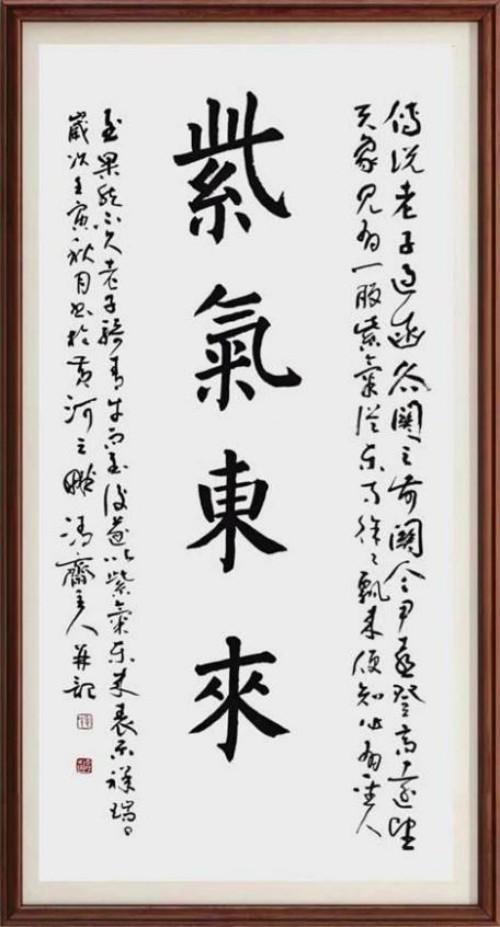 傳说老子過函谷關之前關令尹喜登高遠望
天象見有一股紫氣從東方徐徐飄來便知必有聖人
紫氣東來
至果然不久老子騎青牛而至後遂以紫氣東來表示祥瑞
歲次壬寅秋月書於黄河之畔 齋主人并記